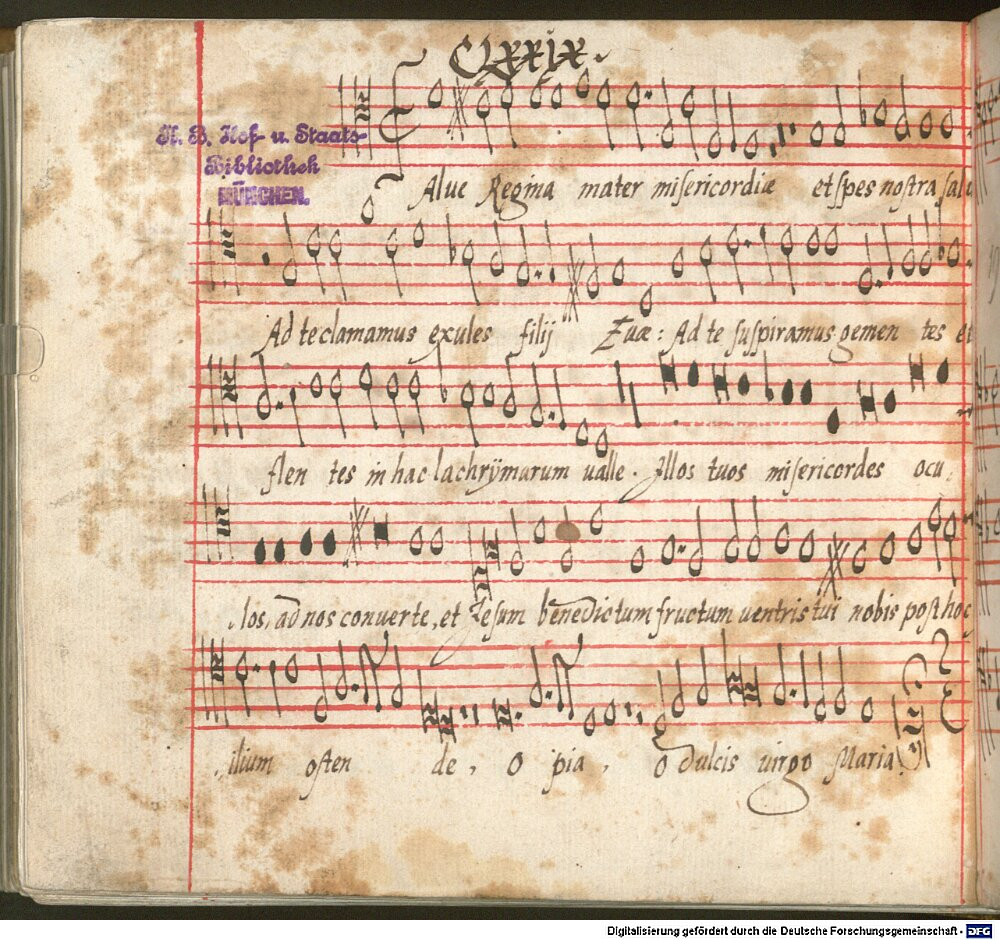 Clxxix.
K. B. Hof- u. Staats-
Bibliothek
MÜNCHEN.
Alue Regina mater misericordiæ et spes nostra salu
Ad te clamamus exules filij Euæ: Ad te suspiramus gemen tes et
flen tes in hac lachrÿmarum ualle. Illos tuos misericordes ocu,
los, ad nos conuerte, et Jesum benedictum fructum uentris tui nobis post hoc
ilium osten de, O pia, o dulcis uirgo Maria.
Digitalisierung gefördert durch die Deutsche Forschungsgemeinschaft - DFG